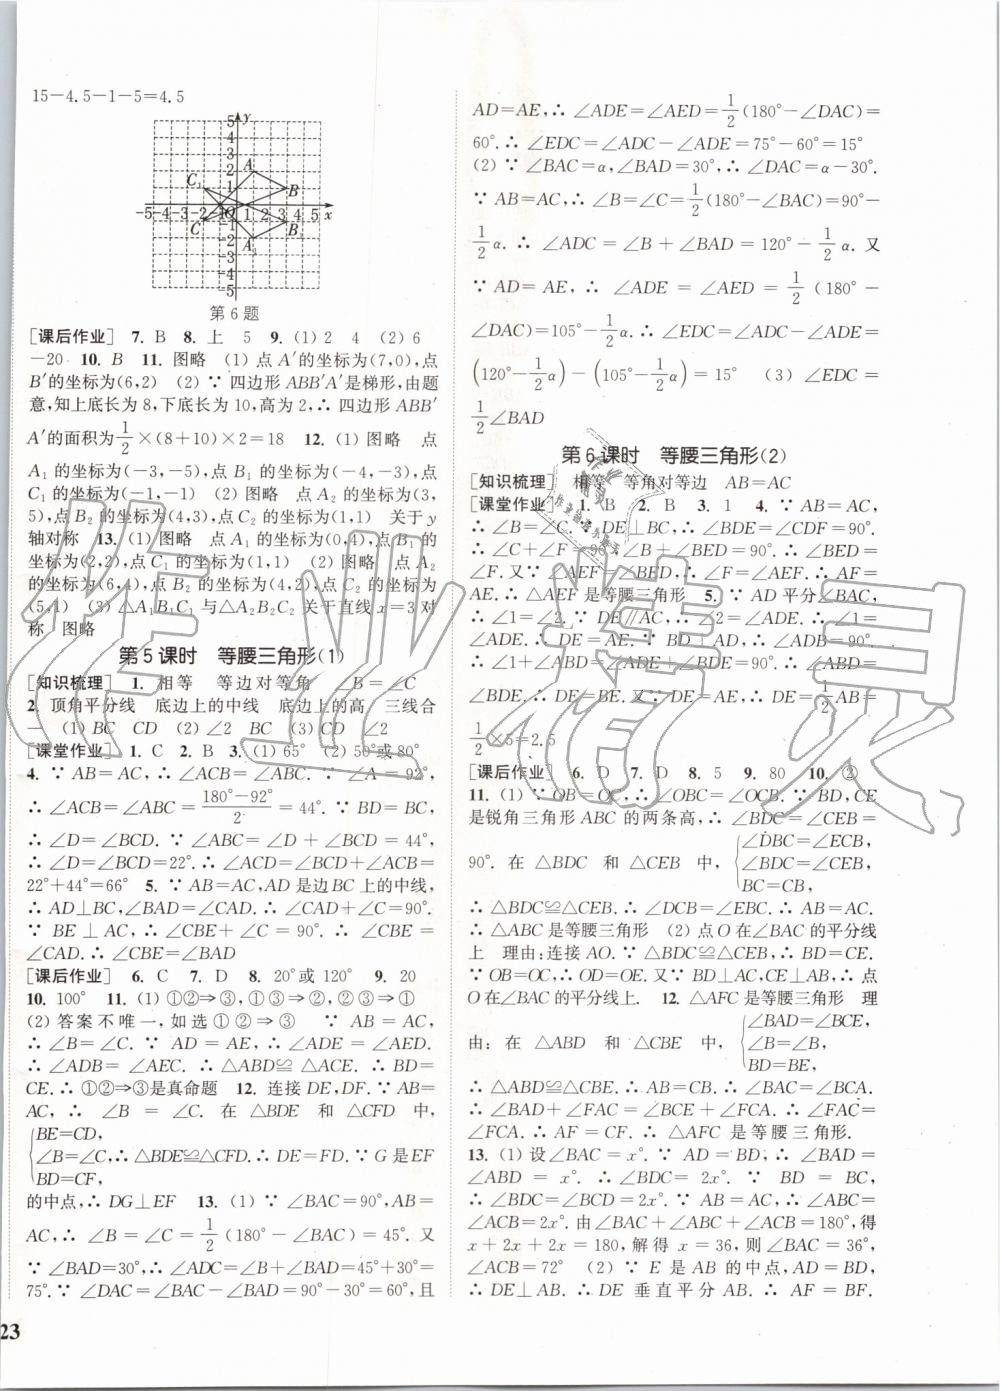 15－4.5－1－5＝4.5
y
5
4
3
2
1
A
B
C₁
-5 -4 -3 -2 -1 O 1 2 3 4 5 x
C
B₁
A₁
-1
-2
-3
-4
-5
第6题
[课后作业] 7. B 8. 上 5 9. (1) 2 4 (2) 6
－20 10. B 11. 图略 (1) 点A′的坐标为(7,0),点
B′的坐标为(6,2) (2) ∵ 四边形ABB′A′是梯形,由题
意,知上底长为8,下底长为10,高为2,∴ 四边形ABB′
A′的面积为1/2×(8＋10)×2＝18 12. (1) 图略 点
A₁的坐标为(－3,－5),点B₁的坐标为(－4,－3),点
C₁的坐标为(－1,－1) (2) 图略 点A₂的坐标为(3,
5),点B₂的坐标为(4,3),点C₂的坐标为(1,1) 关于y
轴对称 13. (1) 图略 点A₁的坐标为(0,4),点B₁
的坐标为(2,2),点C₁的坐标为(1,1) (2) 图略 点A₂
的坐标为(6,4),点B₂的坐标为(4,2),点C₂的坐标为
(5,1) (3) △A₁B₁C₁与△A₂B₂C₂关于直线x＝3对
称 图略
第5课时 等腰三角形(1)
[知识梳理] 1. 相等 等边对等角 ∠B＝∠C
2. 顶角平分线 底边上的中线 底边上的高 三线合
一 (1) BC CD (2) ∠2 BC (3) CD ∠2
[课堂作业] 1. C 2. B 3. (1) 65° (2) 50°或80°
4. ∵ AB＝AC,∴ ∠ACB＝∠ABC. ∵ ∠A＝92°,
∴ ∠ACB＝∠ABC＝(180°－92°)/2＝44°. ∵ BD＝BC,
∴ ∠D＝∠BCD. ∵ ∠ABC＝∠D＋∠BCD＝44°,
∴ ∠D＝∠BCD＝22°.∴ ∠ACD＝∠BCD＋∠ACB＝
22°＋44°＝66° 5. ∵ AB＝AC,AD是边BC上的中线,
∴ AD⊥BC,∠BAD＝∠CAD.∴ ∠CAD＋∠C＝90°.
∵ BE⊥AC,∴ ∠CBE＋∠C＝90°.∴ ∠CBE＝
∠CAD.∴ ∠CBE＝∠BAD
[课后作业] 6. C 7. D 8. 20°或120° 9. 20
10. 100° 11. (1) ①②⇒③,①③⇒②,②③⇒①
(2) 答案不唯一,如选①②⇒③ ∵ AB＝AC,
∴ ∠B＝∠C. ∵ AD＝AE,∴ ∠ADE＝∠AED.
∴ ∠ADB＝∠AEC.∴ △ABD≌△ACE.∴ BD＝
CE.∴ ①②⇒③是真命题 12. 连接DE,DF.∵ AB＝
AC,∴ ∠B＝∠C. 在△BDE和△CFD中,
BE＝CD,
∠B＝∠C,∴ △BDE≌△CFD.∴ DE＝FD.∵ G是EF
BD＝CF,
的中点,∴ DG⊥EF 13. (1) ∵ ∠BAC＝90°,AB＝
AC,∴ ∠B＝∠C＝1/2(180°－∠BAC)＝45°. 又
∵ ∠BAD＝30°,∴ ∠ADC＝∠B＋∠BAD＝45°＋30°＝
75°.∵ ∠DAC＝∠BAC－∠BAD＝90°－30°＝60°,且
AD＝AE,∴ ∠ADE＝∠AED＝1/2(180°－∠DAC)＝
60°.∴ ∠EDC＝∠ADC－∠ADE＝75°－60°＝15°
(2) ∵ ∠BAC＝α,∠BAD＝30°,∴ ∠DAC＝α－30°.
∵ AB＝AC,∴ ∠B＝∠C＝1/2(180°－∠BAC)＝90°－
1/2α.∴ ∠ADC＝∠B＋∠BAD＝120°－1/2α. 又
∵ AD＝AE,∴ ∠ADE＝∠AED＝1/2(180°－
∠DAC)＝105°－1/2α.∴ ∠EDC＝∠ADC－∠ADE＝
(120°－1/2α)－(105°－1/2α)＝15° (3) ∠EDC＝
1/2∠BAD
第6课时 等腰三角形(2)
[知识梳理] 相等 等角对等边 AB＝AC
[课堂作业] 1. B 2. B 3. 1 4. ∵ AB＝AC,
∴ ∠B＝∠C.∵ DE⊥BC,∴ ∠BDE＝∠CDF＝90°.
∴ ∠C＋∠F＝90°,∠B＋∠BED＝90°.∴ ∠BED＝
∠F.又∵ ∠AEF＝∠BED,∴ ∠F＝∠AEF.∴ AF＝
AE.∴ △AEF是等腰三角形 5. ∵ AD平分∠BAC,
∴ ∠1＝∠2.∵ DE∥AC,∴ ∠2＝∠ADE.∴ ∠1＝
∠ADE.∴ DE＝AE.∵ AD⊥BD,∴ ∠ADB＝90°.
∴ ∠1＋∠ABD＝∠ADE＋∠BDE＝90°.∴ ∠ABD＝
∠BDE.∴ DE＝BE.又∵ DE＝AE,∴ DE＝1/2AB＝
1/2×5＝2.5
[课后作业] 6. D 7. D 8. 5 9. 80 10. ②
11. (1) ∵ OB＝OC,∴ ∠OBC＝∠OCB.∵ BD,CE
是锐角三角形ABC的两条高,∴ ∠BDC＝∠CEB＝
90°. 在△BDC和△CEB中,
∠DBC＝∠ECB,
∠BDC＝∠CEB,
BC＝CB,
∴ △BDC≌△CEB.∴ ∠DCB＝∠EBC.∴ AB＝AC.
∴ △ABC是等腰三角形 (2) 点O在∠BAC的平分线
上 理由:连接AO.∵ △BDC≌△CEB,∴ BD＝CE.
∵ OB＝OC,∴ OD＝OE.又∵ BD⊥AC,CE⊥AB,∴ 点
O在∠BAC的平分线上. 12. △AFC是等腰三角形 理
由:在△ABD和△CBE中,
∠BAD＝∠BCE,
∠B＝∠B,
BD＝BE,
∴ △ABD≌△CBE.∴ AB＝CB.∴ ∠BAC＝∠BCA.
∴ ∠BAD＋∠FAC＝∠BCE＋∠FCA.∴ ∠FAC＝
∠FCA.∴ AF＝CF.∴ △AFC是等腰三角形.
13. (1) 设∠BAC＝x°.∵ AD＝BD,∴ ∠BAD＝
∠ABD＝x°.∴ ∠BDC＝2x°. ∵ BD＝BC,
∴ ∠BDC＝∠BCD＝2x°. ∵ AB＝AC,∴ ∠ABC＝
∠ACB＝2x°.由∠BAC＋∠ABC＋∠ACB＝180°,得
x＋2x＋2x＝180,解得x＝36,则∠BAC＝36°,
∠ACB＝72° (2) ∵ E是AB的中点,AD＝BD,
∴ DE⊥AB.∴ DE垂直平分AB.∴ AF＝BF.
23
作业精灵